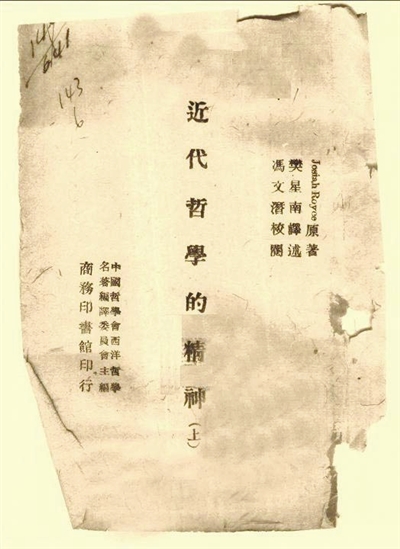 Josiah Royce 原著
樊星南譯述
馮文潛校閱
近代哲學的精神(上)
中國哲學會西洋哲學
名著編譯委員會主編
商務印書館印行
143
6